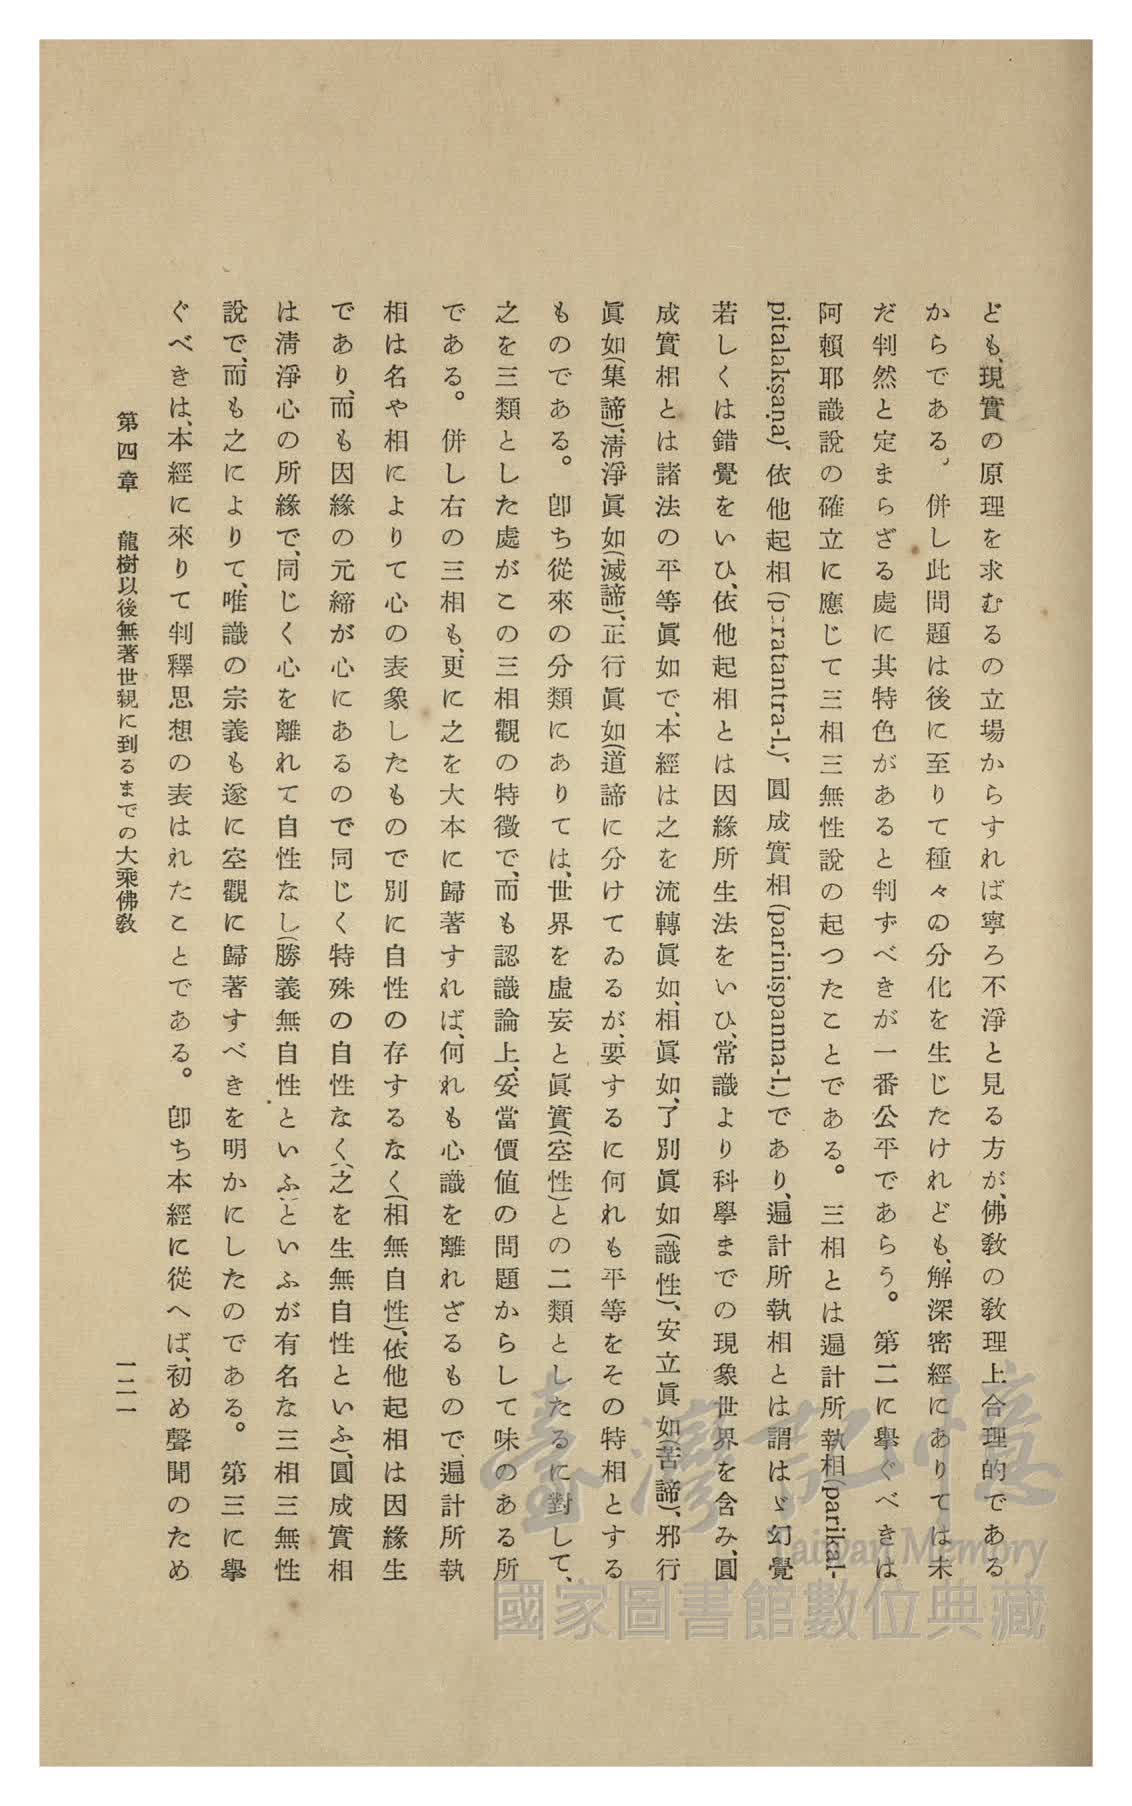 ども、現實の原理を求むるの立場からすれば寧ろ不淨と見る方が、佛敎の敎理上合理的である
からである。併し此問題は後に至りて種々の分化を生じたけれども、解深密經にありては未
だ判然と定まらざる處に其特色があると判ずべきが一番公平であらう。第二に擧ぐべきは
阿賴耶識說の確立に應じて三相三無性說の起つたことである。三相とは遍計所執相(parikal-
pitalakṣaṇa)、依他起相(paratantra-l.)、圓成實相(pariniṣpanna-l.)であり、遍計所執相とは謂はゞ幻覺
若しくは錯覺をいひ、依他起相とは因緣所生法をいひ、常識より科學までの現象世界を含み、圓
成實相とは諸法の平等眞如で、本經は之を流轉眞如、相眞如、了別眞如(識性)、安立眞如(苦諦)、邪行
眞如(集諦)、淸淨眞如(滅諦)、正行眞如(道諦に分けてゐるが、要するに何れも平等をその特相とする
ものである。卽ち從來の分類にありては、世界を虛妄と眞實(空性)との二類としたるに對して、
之を三類とした處がこの三相觀の特徵で、而も認識論上、妥當價値の問題からして味のある所
である。併し右の三相も、更に之を大本に歸著すれば、何れも心識を離れざるもので、遍計所執
相は名や相によりて心の表象したもので別に自性の存するなく(相無自性)、依他起相は因緣生
であり、而も因緣の元締が心にあるので同じく特殊の自性なく、(之を生無自性といふ)、圓成實相
は淸淨心の所緣で、同じく心を離れて自性なし(勝義無自性といふ)といふが有名な三相三無性
說で、而も之によりて、唯識の宗義も遂に空觀に歸著すべきを明かにしたのである。第三に擧
ぐべきは、本經に來りて判釋思想の表はれたことである。卽ち本經に從へば、初め聲聞のため
第四章 龍樹以後無著世親に到るまでの大乘佛敎
一二一
臺灣記憶
Taiwan Memory
國家圖書館數位典藏